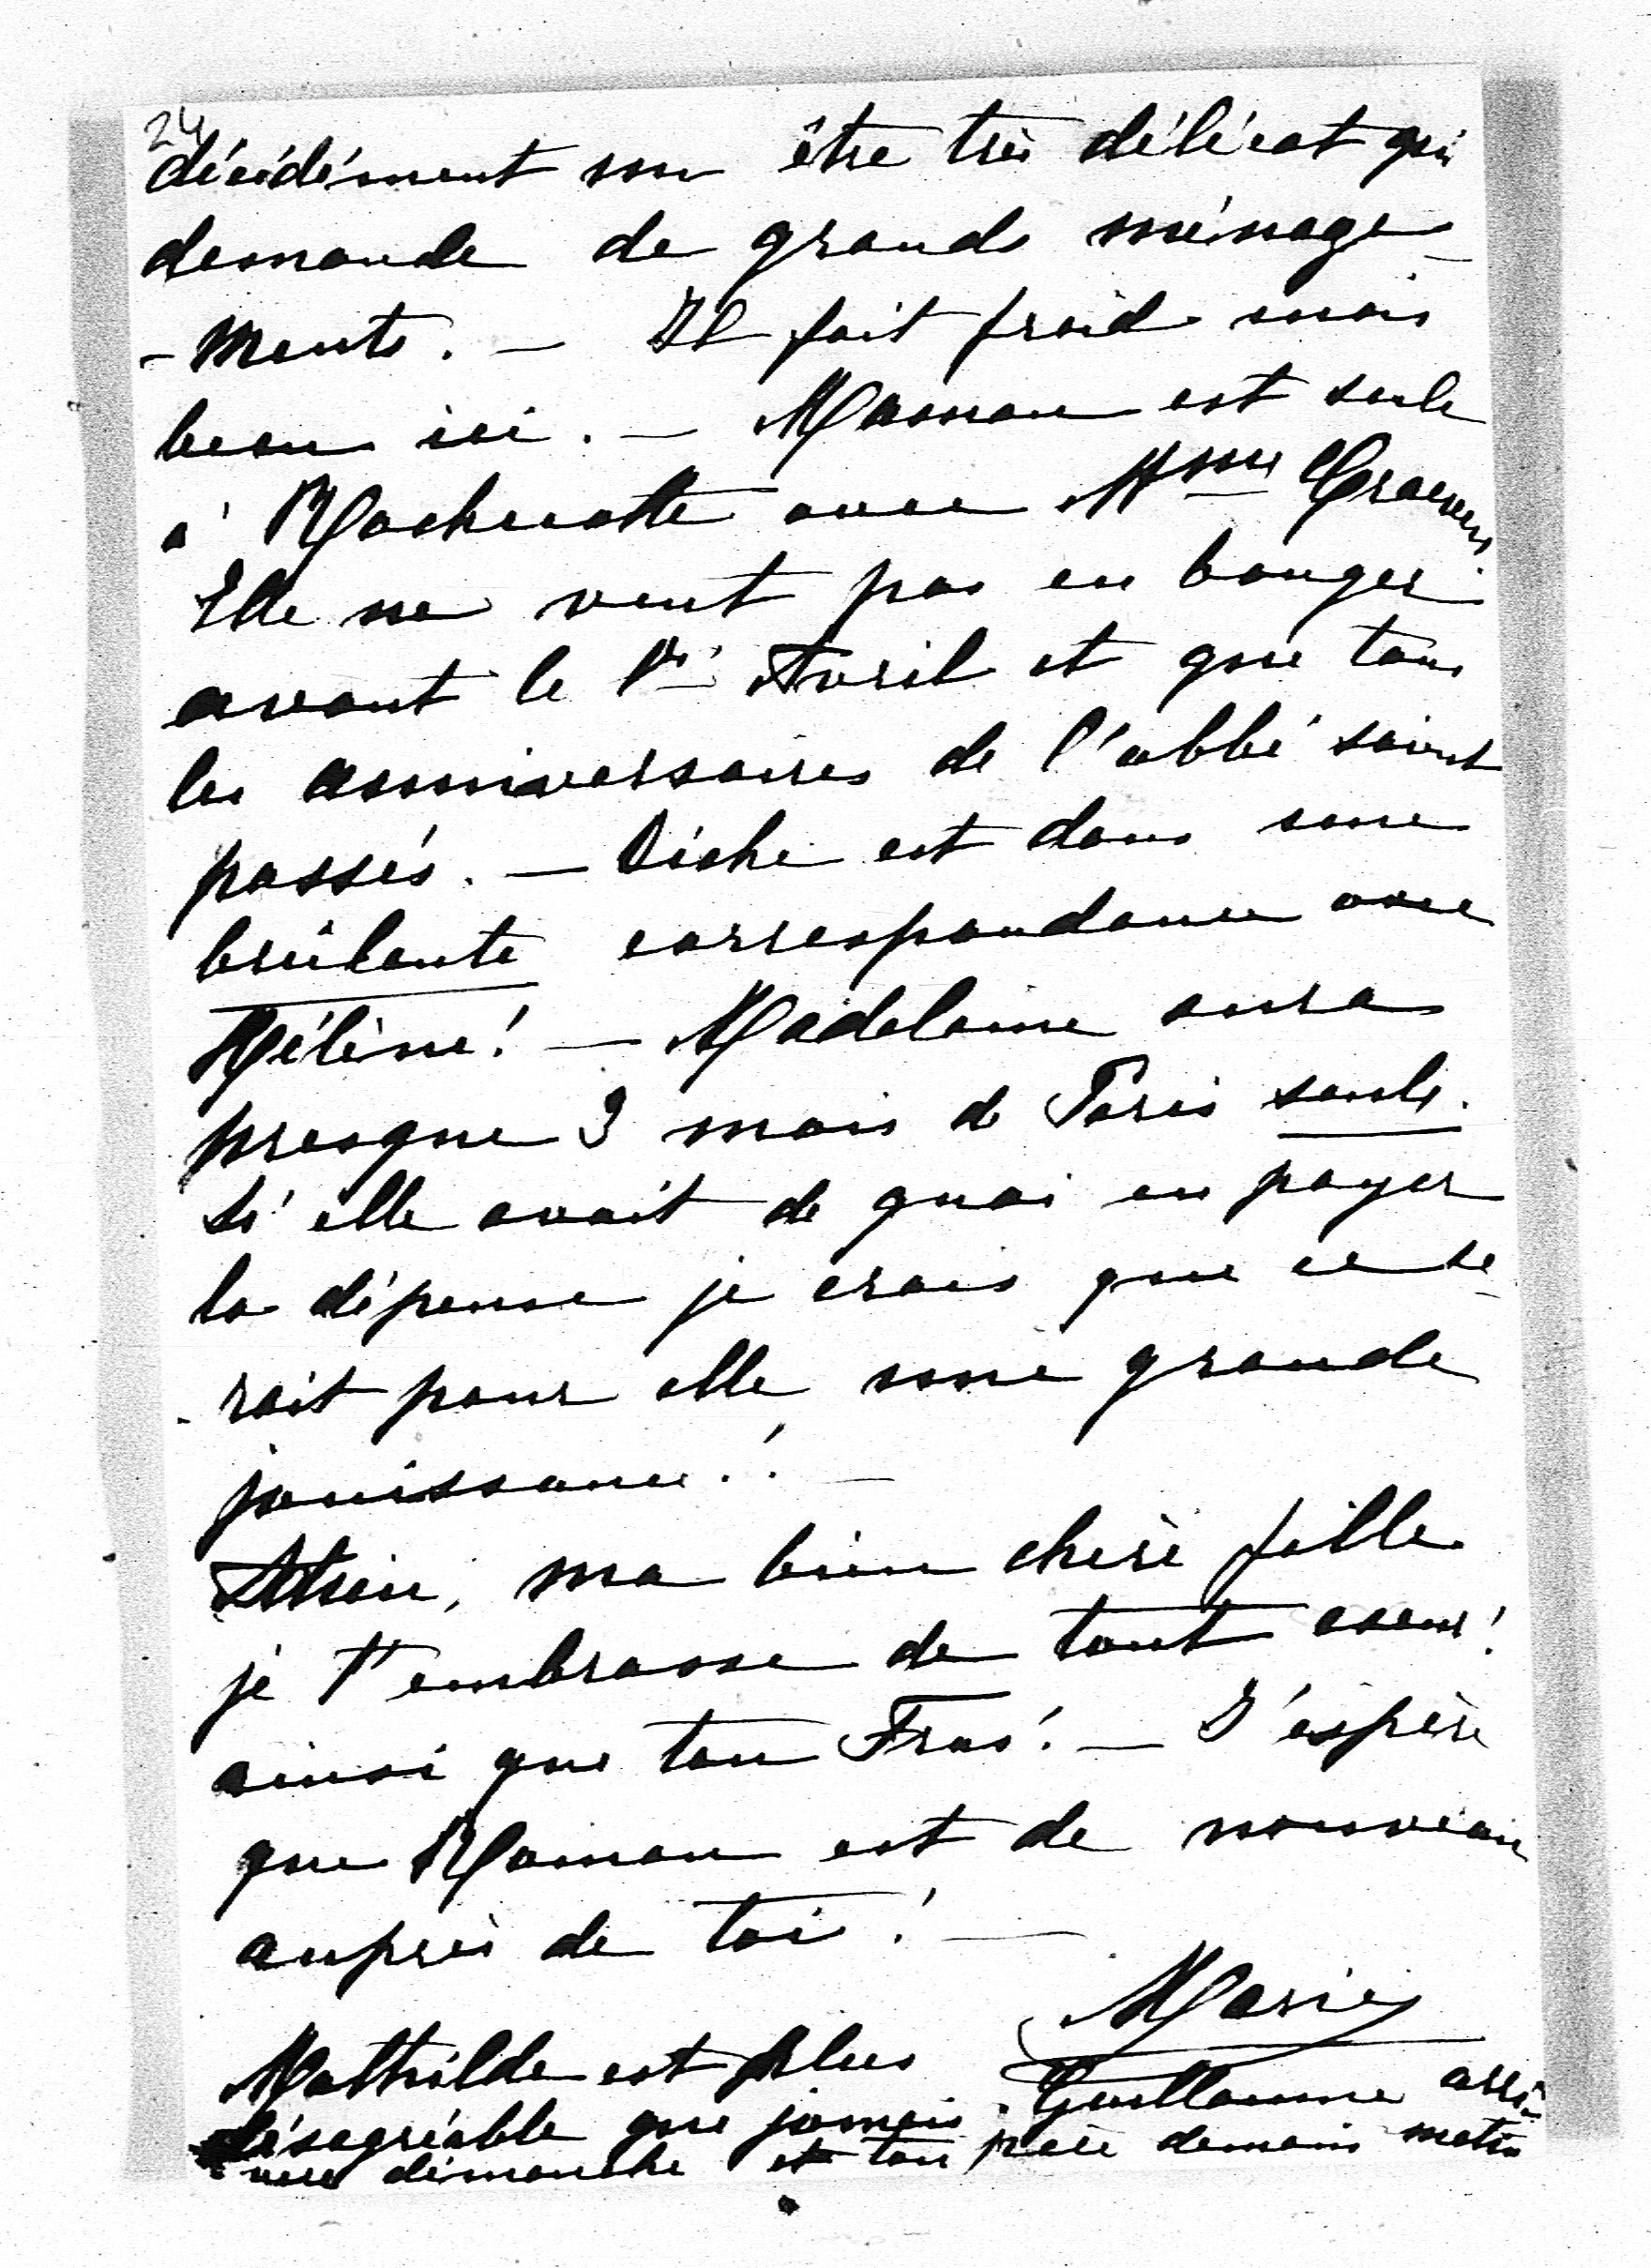 24
décidément un être très délicat qui
demande de grands ménage-
-ments. — Il fait froid mais
beau ici. — Maman est seule
à Rochecotte avec Mme
Elle ne veut pas en bouger
avant le 1er Avril et que tous
les anniversaires de l'abbé soient
passés. — Biche est dans une
brûlante correspondance avec
Hélène! — Madelaine aura
presque 3 mois de Paris seule.
Si elle avait de quoi en payer
la dépense je crois que ce se-
-rait pour elle une grande
jouissance!! —
Adieu, ma bien chère fille
je t'embrasse de tout coeur!
ainsi que ton Frus! — J'espère
que Maman est de nouveau
auprès de toi! —
Marie
Mathilde est plus
désagréable que jamais. Guillaume arri-
-vera dimanche et ton père demain matin